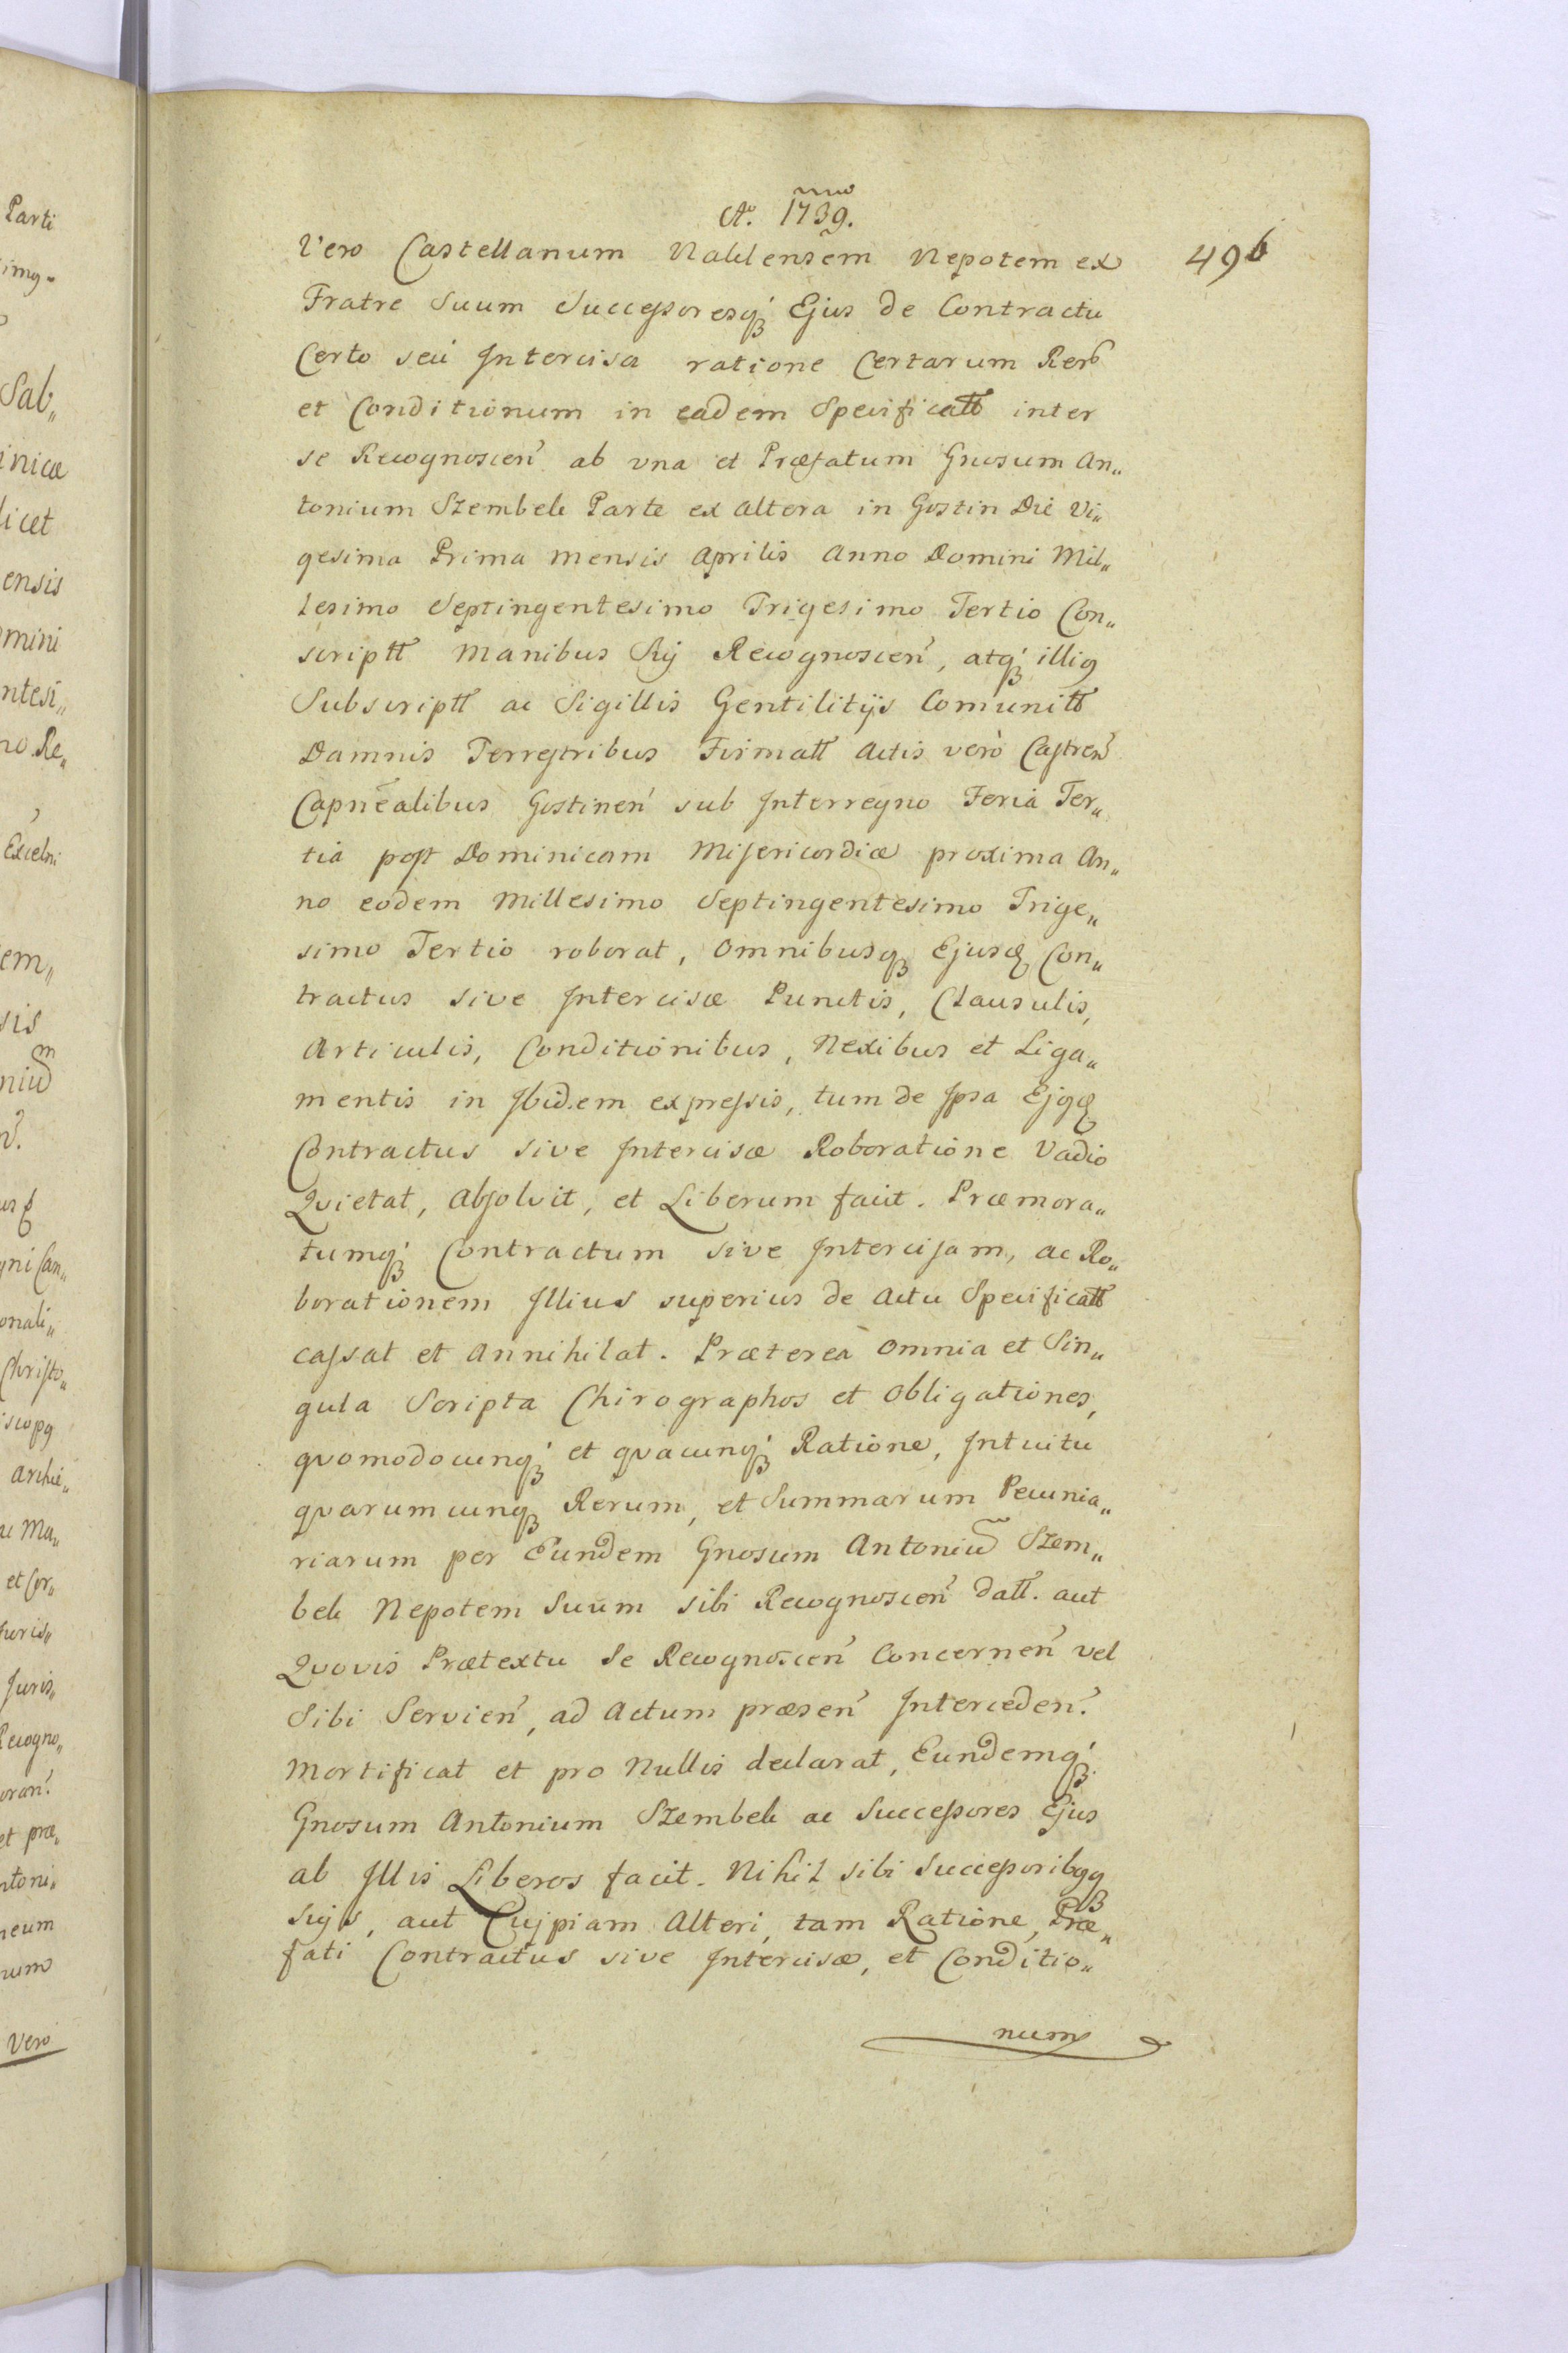 Ao. 1739.
496
Vero Castellanum Naklensem Nepotem ex
Fratre Suum Successoresq; Ejus de Contractu
Certo seu Intercisa ratione Certarum Rer
et Conditionum in eadem Specificatt inter
se Recognoscen ab vna et Præfatum Gnosum An„
tonium Szembek Parte ex altera in Gostin Die Vi„
gesima Prima mensis Aprilis Anno Domini Mil„
lesimo Septingentesimo Trigesimo Tertio Con„
scriptt Manibus Sui Recognoscen, atq; illiq
Subscriptt ac Sigillis Gentilitijs Comunitt
Damnis Terrestribus Firmatt Actis verò Castren
Capnealibus Gostinen sub Interregno Feria Ter„
tia post Dominicam Misericordiæ proxima An„
no eodem Millesimo Septingentesimo Trige„
simo Tertio roborat, Omnibusq; Ejusd Con„
tractus sive Intercisæ Punctis, Clausulis,
Articulis, Conditionibus, Nexibus et Liga„
mentis in Ibidem expressis, tum de Ipsa Ejqd
Contractus sive Intercisæ Roboratione Vadio
Qvietat, Absolvit, et Liberum facit. Præmora„
tumq; Contractum sive Intercisam, ac Ro„
borationem Illius superius de Actu Specificatt
cassat et Annihilat. Præterea Omnia et Sin„
gula Scripta Chirographos et Obligationes,
qvomodocunq; et qvacunq; Ratione, Intuitu
qvarumcunq; Rerum, et Summarum Pecunia„
riarum per Eundem Gnosum Antoniu Szem„
bek Nepotem Suum sibi Recognoscen datt. aut
Qvovis Prætextu Se Recognoscen Concernen vel
Sibi Servien, ad Actum præsen Interceden.
Mortificat et pro Nullis declarat, Eundemq;
Gnosum Antonium Szembek ac Successores Ejus
ab Illis Liberos facit. Nihil sibi Successoribqq;
Suis, aut Cujpiam Alteri, tam Ratione, Præ„
fati Contractus sive Intercisæ, et Conditio„
num